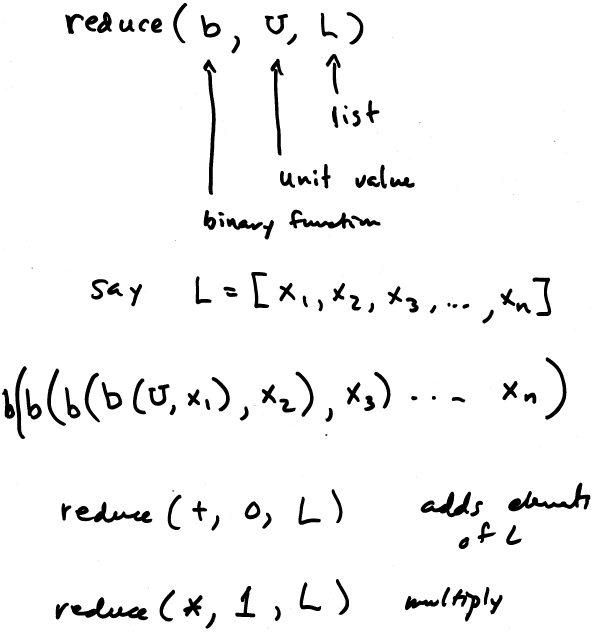 reduce(b, U, L)
list
unit value
binary function
say L = [x₁, x₂, x₃, ..., xₙ]
b(b(b(b(U, x₁), x₂), x₃) ... xₙ)
reduce(+, 0, L) adds elements
of L
reduce(*, 1, L) multiply